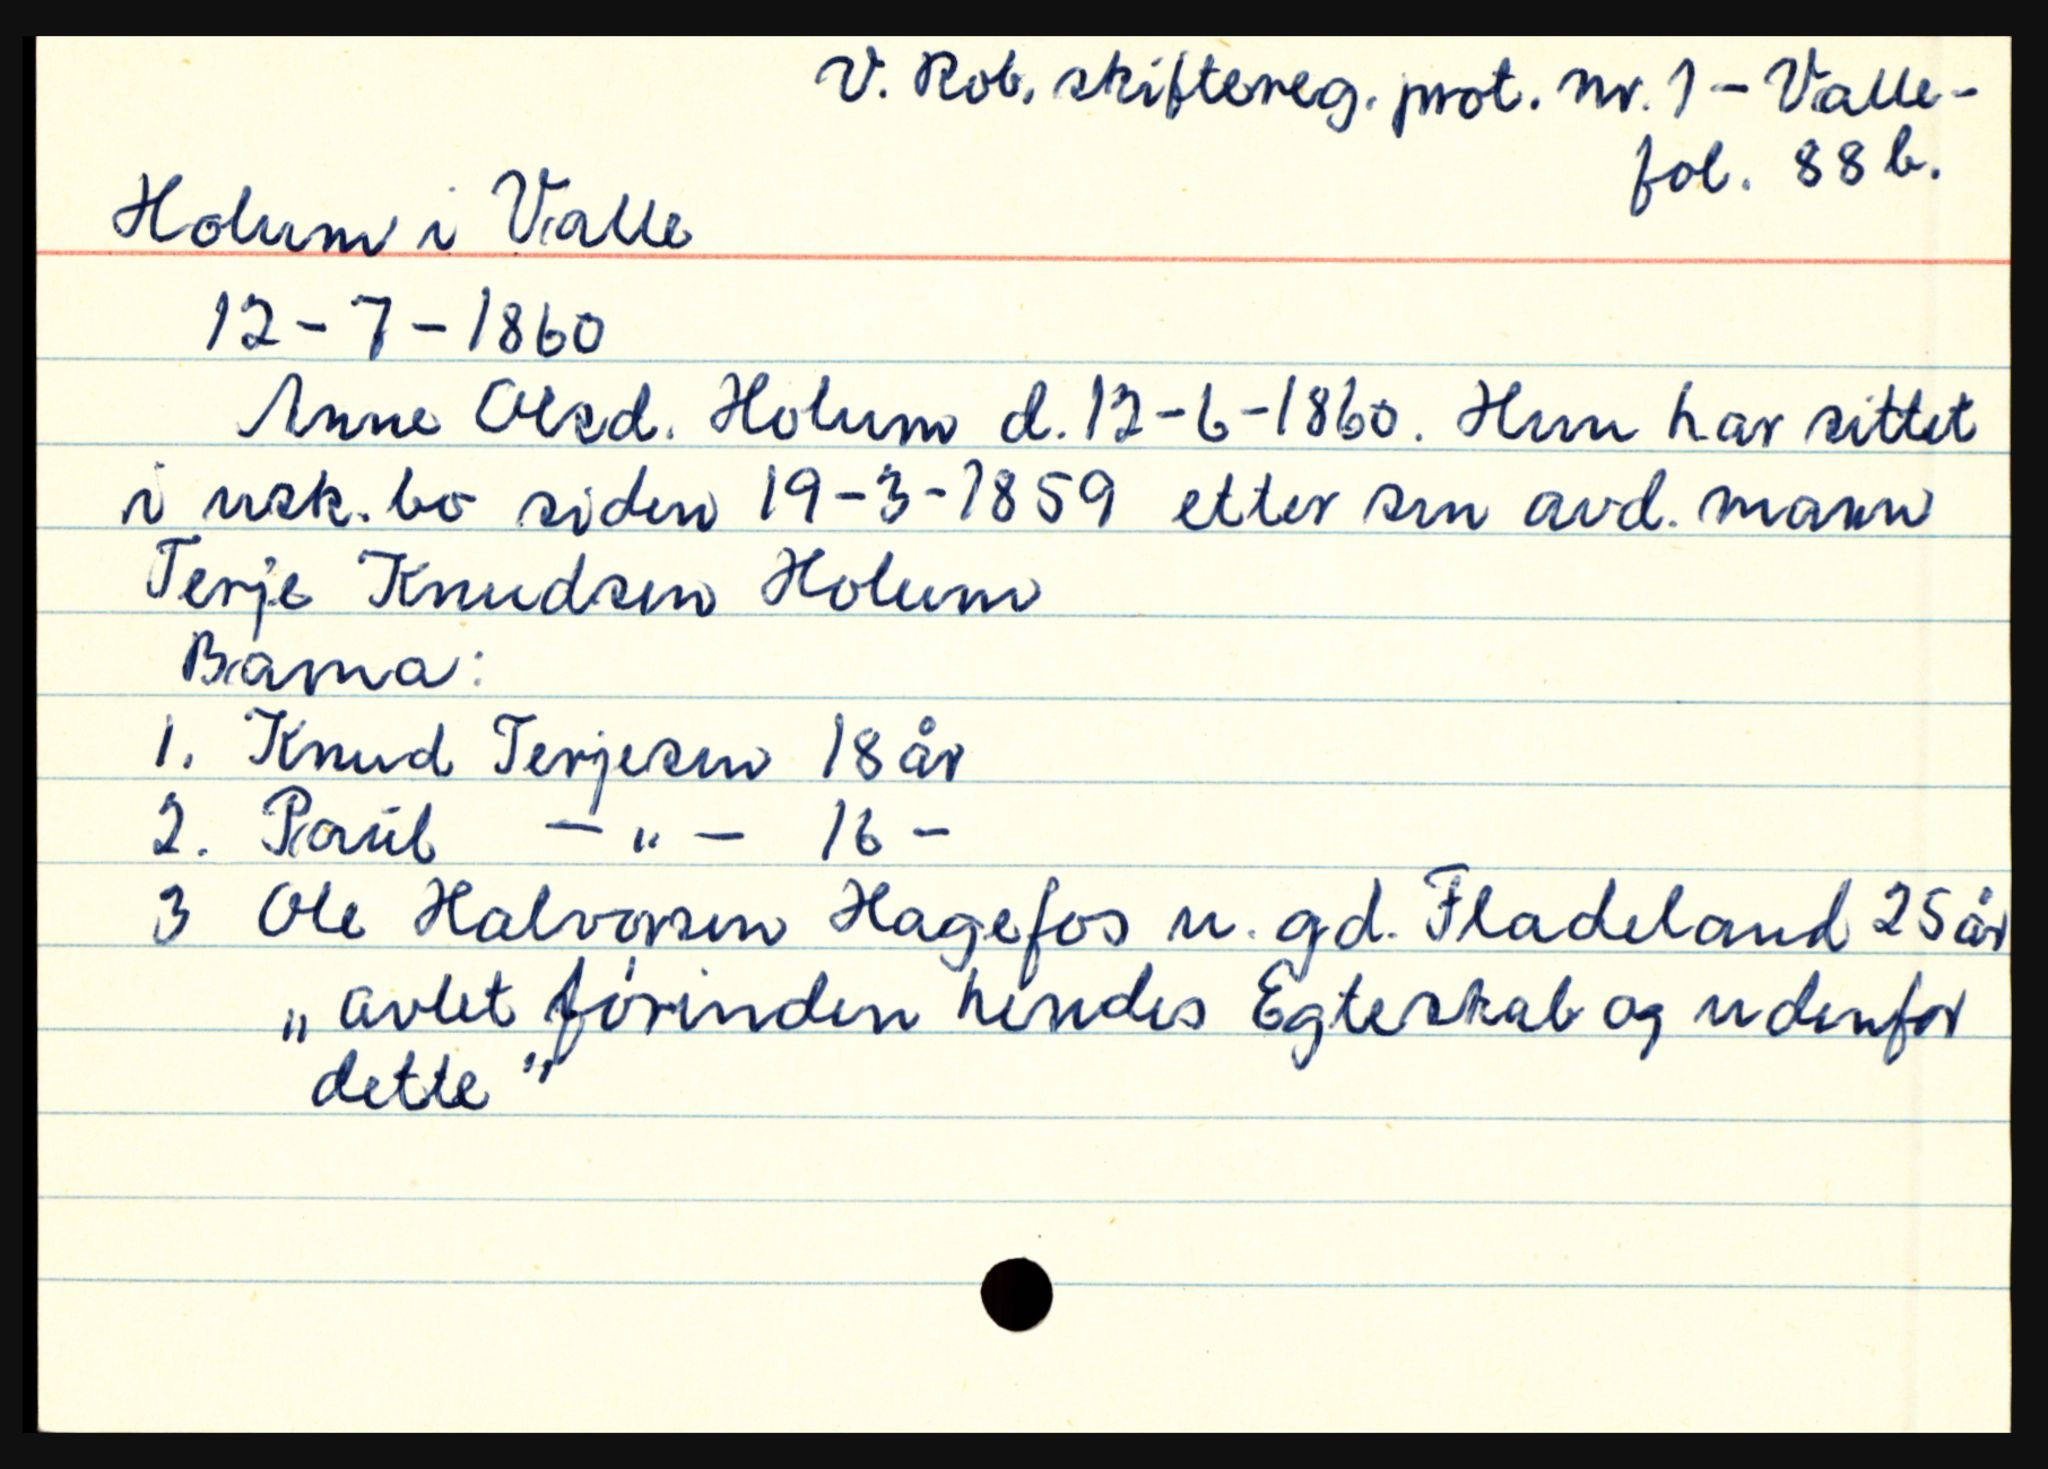 V. Rob. skiftereg. prot. nr. 1 - Valle -
fol. 88 b.
Holum i Valle
12-7-1860
Anne Olsd. Holum d. 12-6-1860. Hun har sittet
i usk. bo siden 19-3-1859 etter sin avd. mann
Terje Knudsen Holum
Barna:
1. Knud Terjesen 18 år
2. Paul — " — 16 -
3 Ole Halvorsen Hagefos u. gd. Fladeland 25 år
„ avlet førinden hendes Egteskab og udenfor
dette "